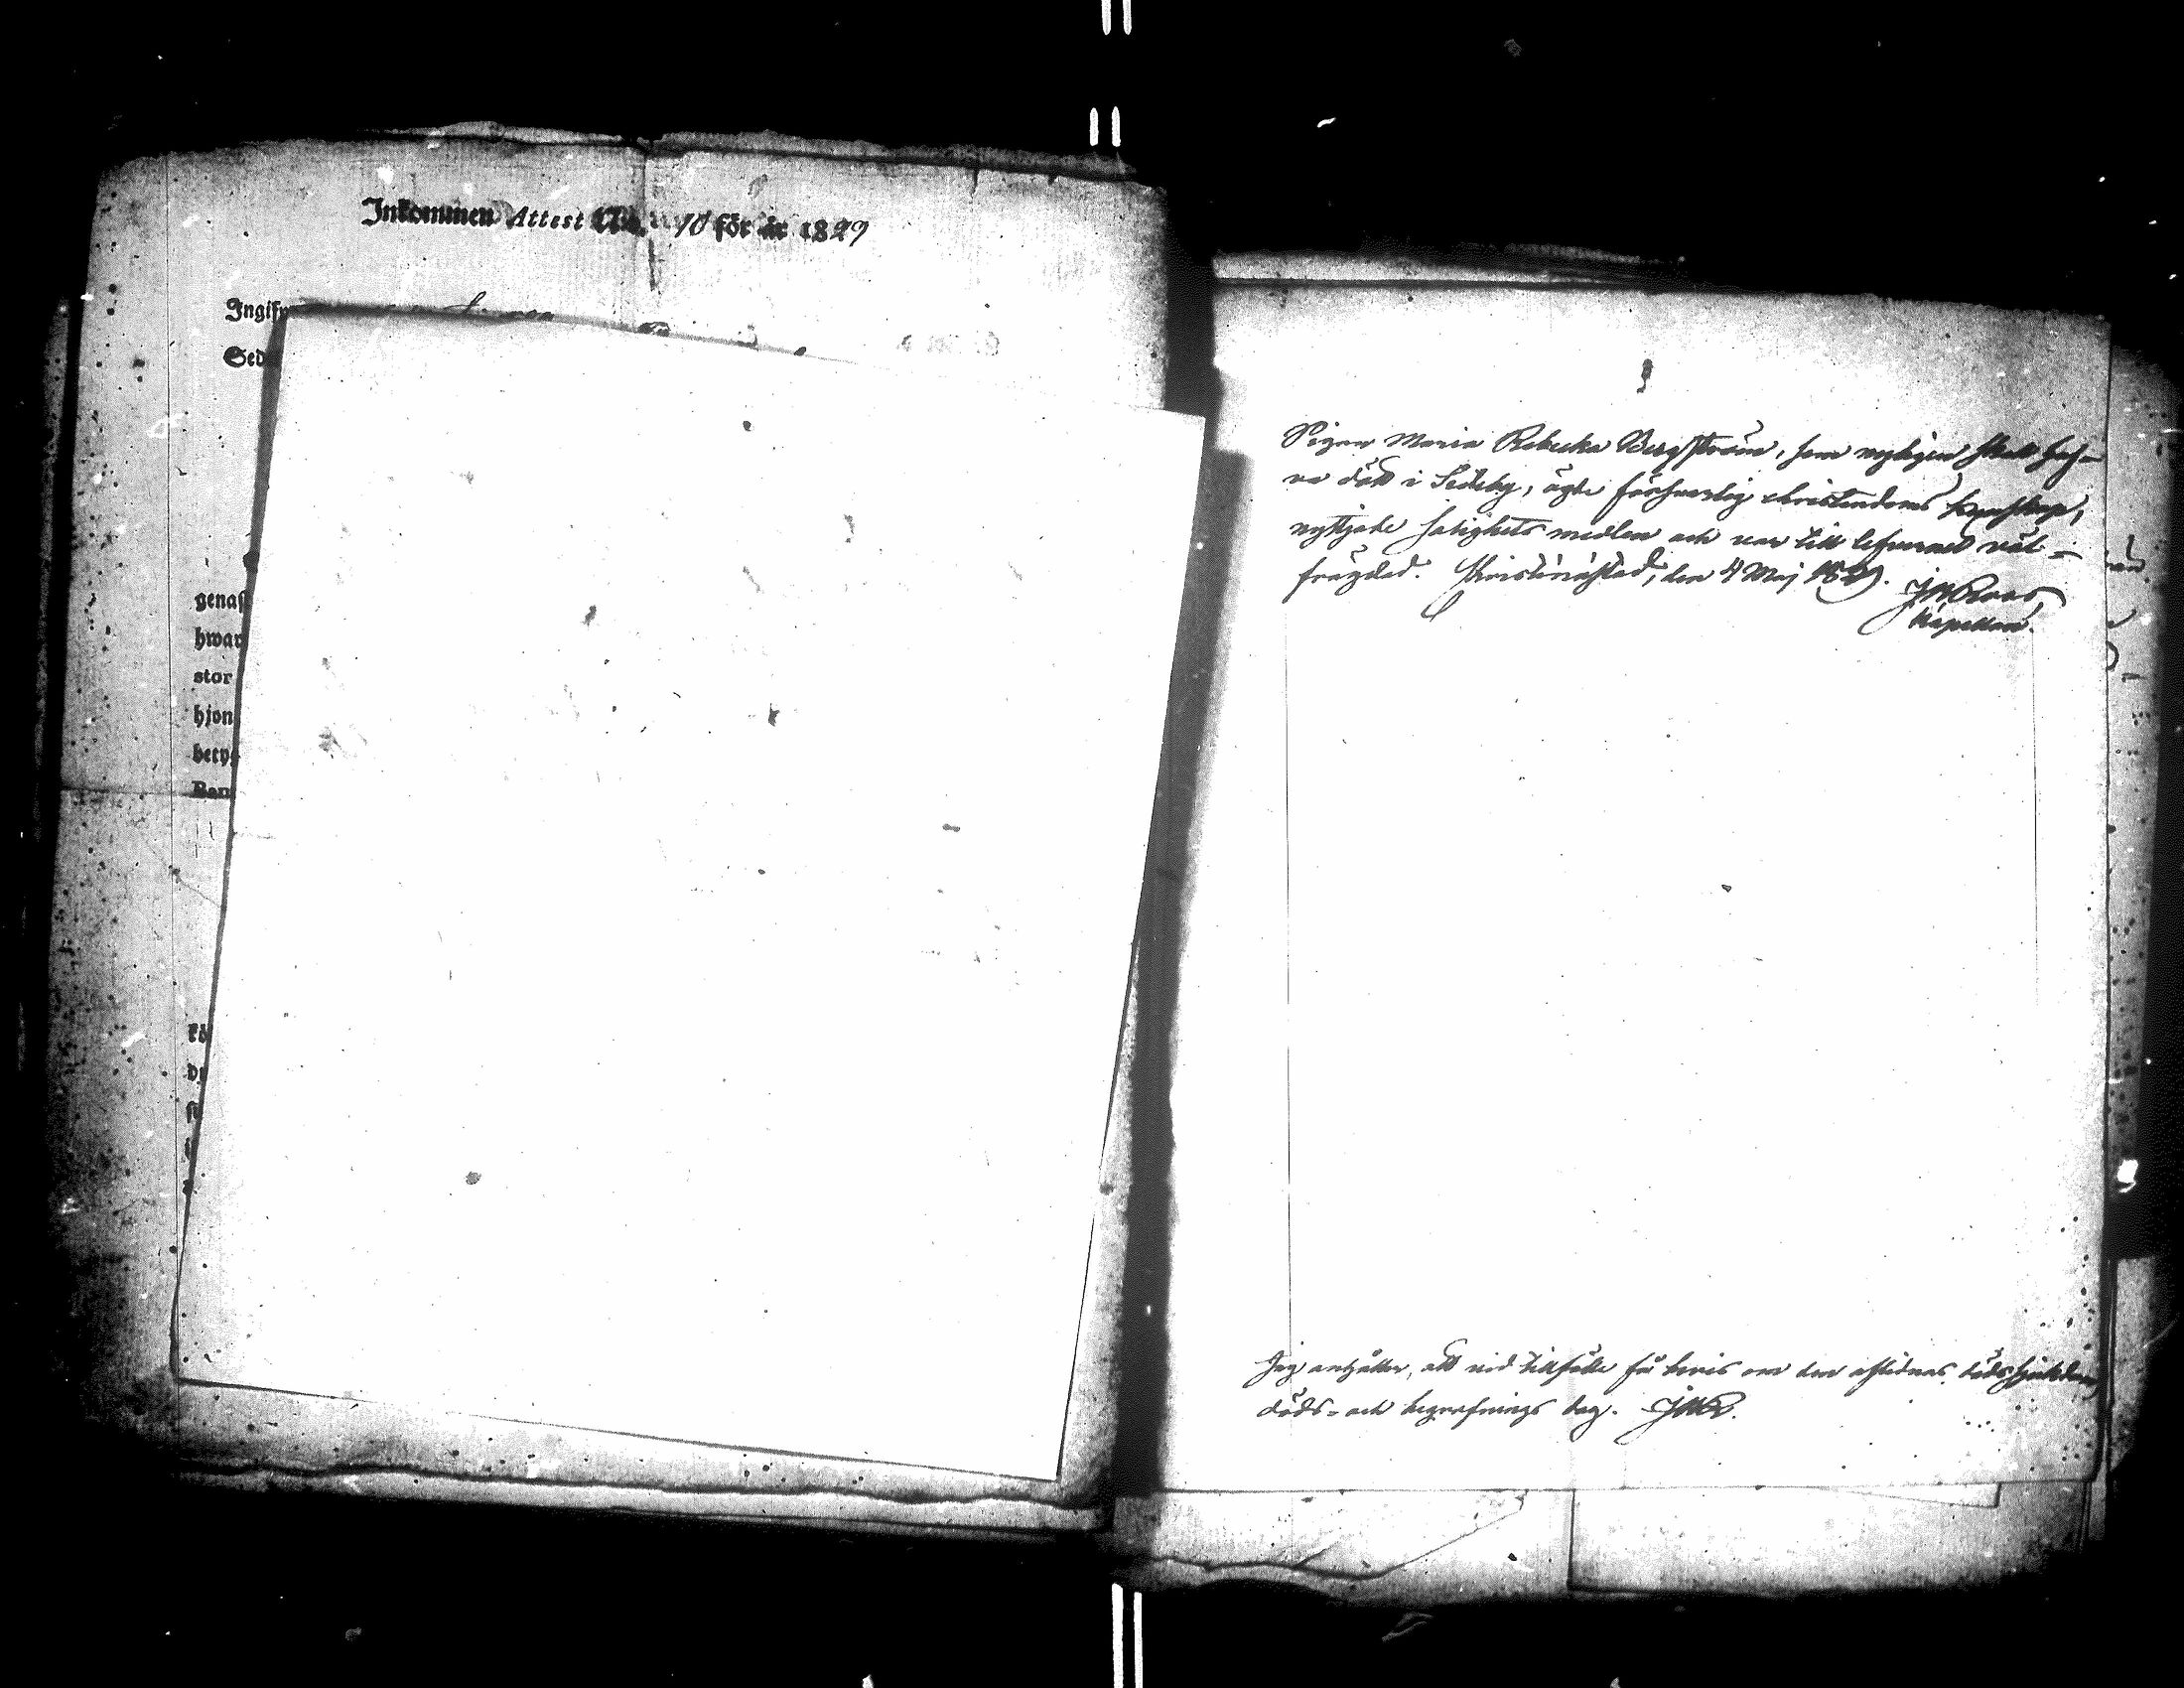 Inkommen Attest No. 10 för år 1829
Ingifv
Sed
genast
hwar
stor
hjon
bety
Ran
kö
Pigan Maria Rebecka Bergström, som nyligen skall haf-
va dödt i Sideby, ägde försvarlig christendoms kunskap,
nyttjade salighets medlen och var till lefvernet väl-
frägdad. Christinæstad, den 4 Maj 1829.
Kapellan.
Jag anhåller, att vid tillfälle få bevis om den aflidnas dödssjukdom,
döds- och begrafnings dag.